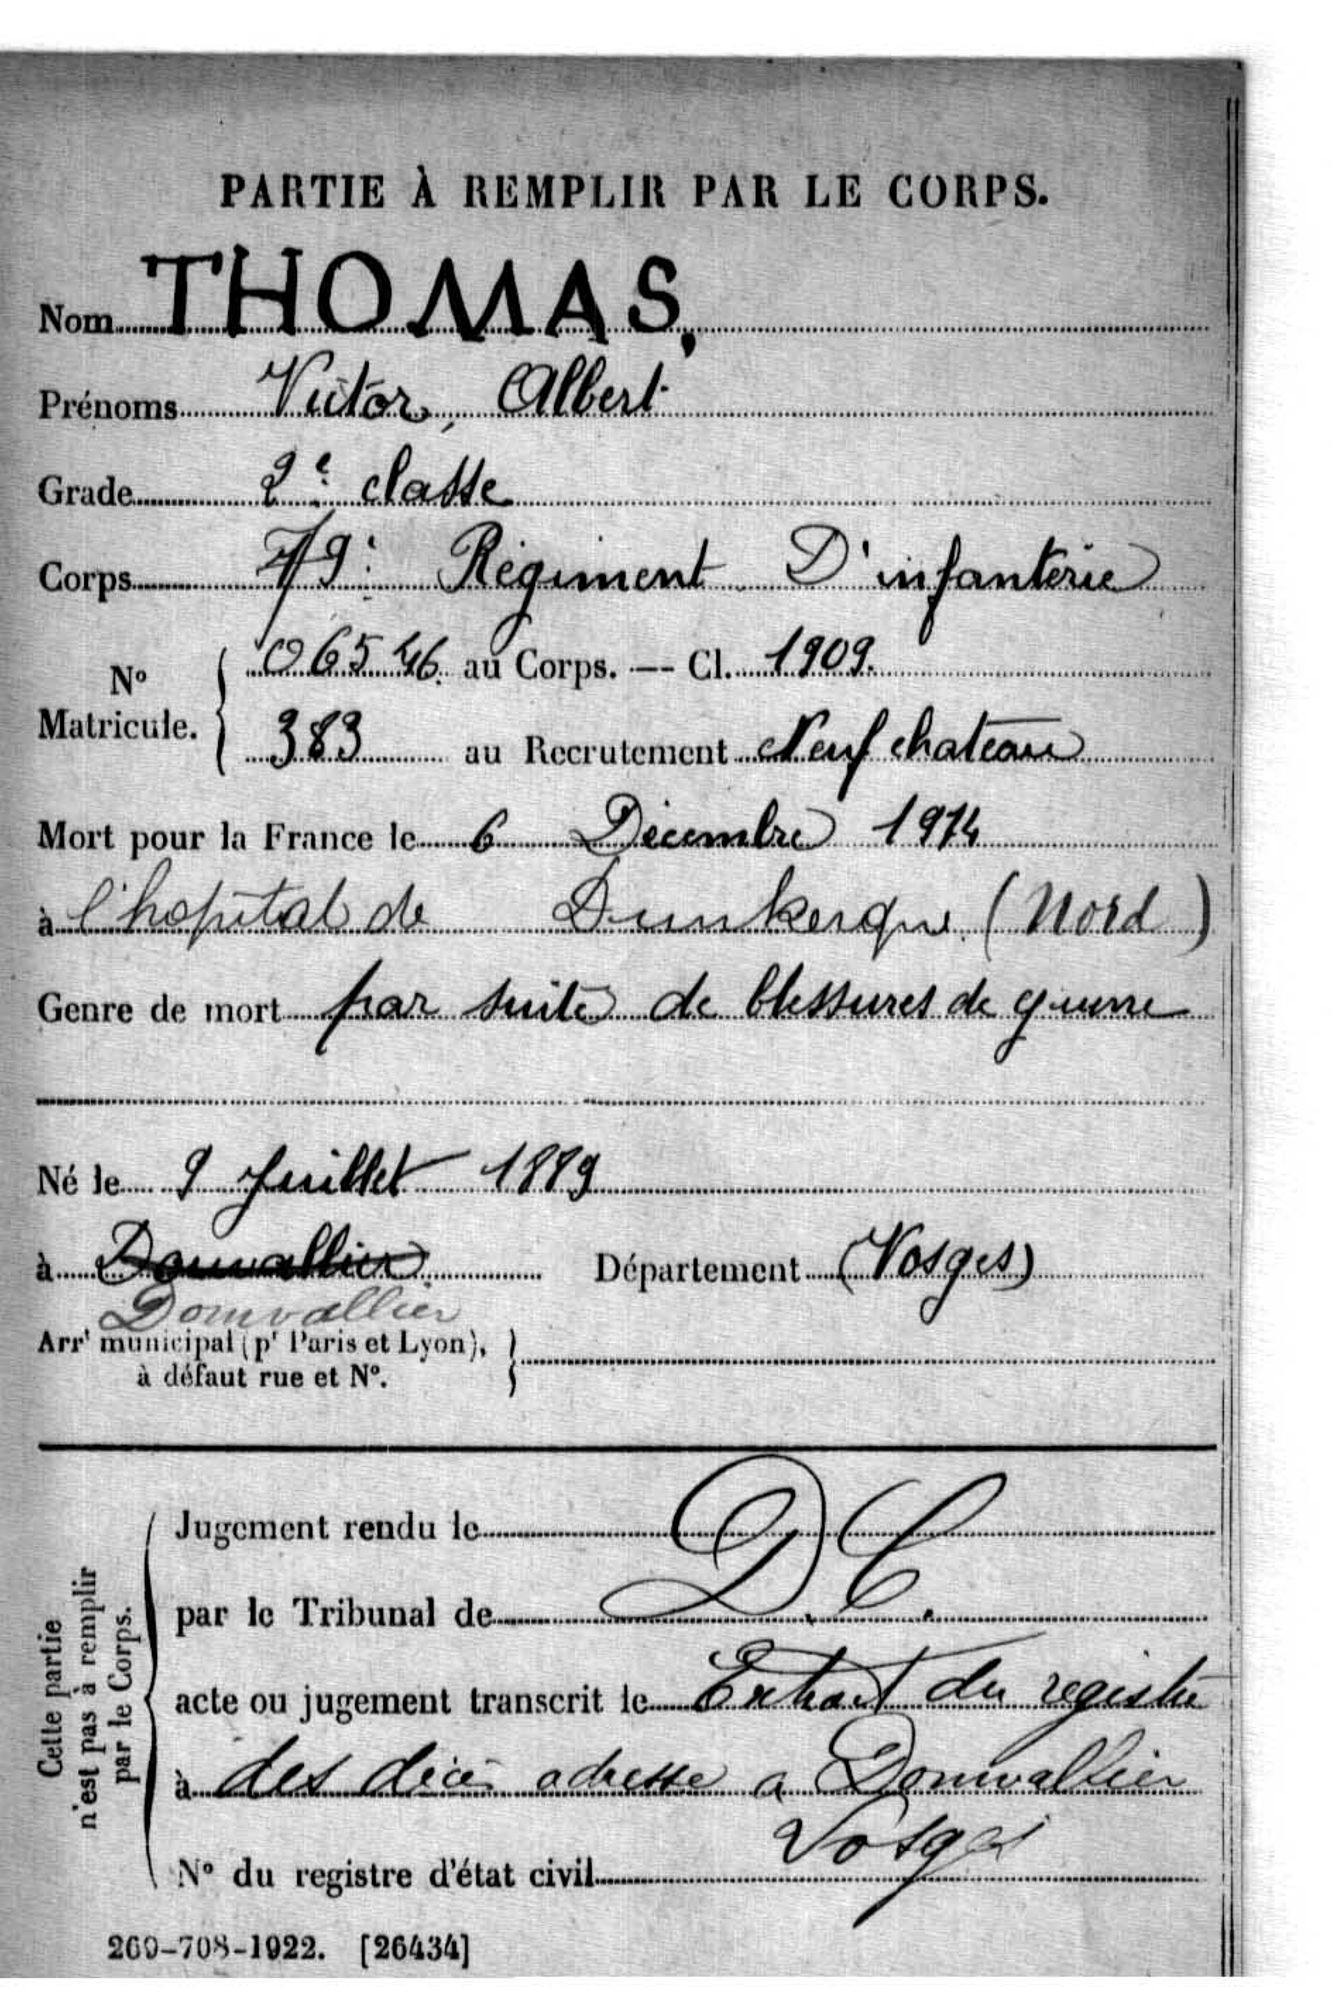 PARTIE À REMPLIR PAR LE CORPS.
Nom THOMAS,
Prénoms Victor, Albert
Grade 2e classe
Corps 79e Régiment D'infanterie
No Matricule. 06546 au Corps. — Cl. 1909.
383 au Recrutement Neufchateau
Mort pour la France le 6 Décembre 1914
à l'hopital de Dunkerque (Nord)
Genre de mort par suite de blessures de guerre
Né le 9 Juillet 1889
à Domvallier Département (Vosges)
Domvallier
Arrt municipal (pr Paris et Lyon),
à défaut rue et No.
Cette partie
n'est pas à remplir
par le Corps.
Jugement rendu le D.C.
par le Tribunal de
acte ou jugement transcrit le Extrait du registre
à des décès adressé a Domvallier
Vosges
No du registre d'état civil
269-708-1922. [26434]